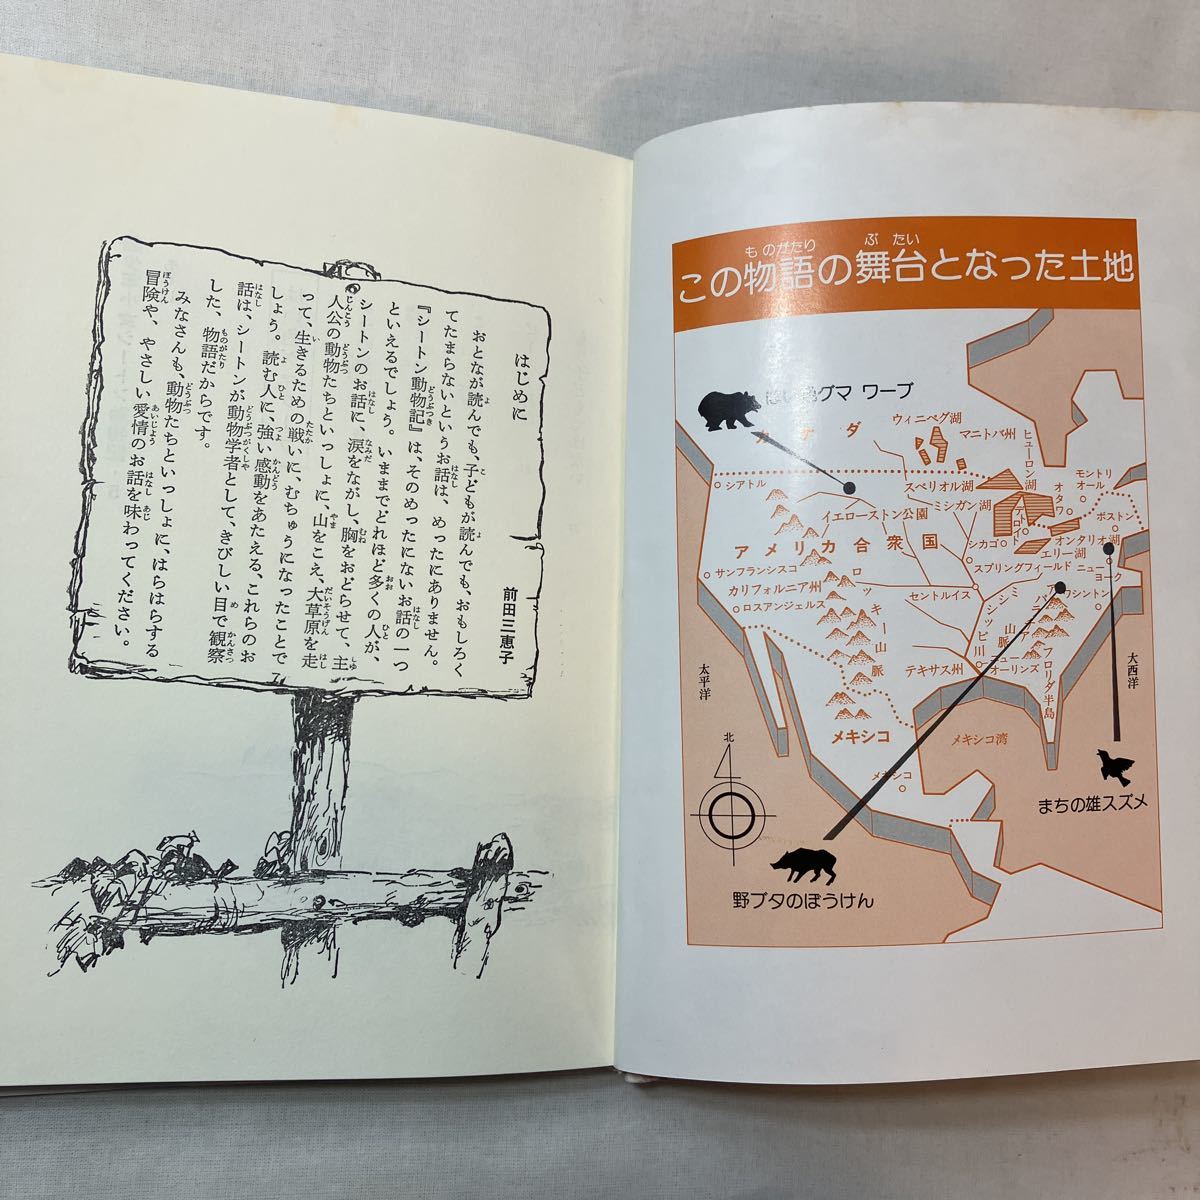 はじめに
前田三恵子
おとなが読んでも、子どもが読んでも、おもしろく
てたまらないというお話は、めったにありません。
『シートン動物記』は、そのめったにないお話の一つ
といえるでしょう。いままでどれほど多くの人が、
シートンのお話に、涙をながし、胸をおどらせて、主
人公の動物たちといっしょに、山をこえ、大草原を走
って、生きるための戦いに、むちゅうになったことで
しょう。読む人に、強い感動をあたえる、これらのお
話は、シートンが動物学者として、きびしい目で観察
した、物語だからです。
みなさんも、動物たちといっしょに、はらはらする
冒険や、やさしい愛情のお話を味わってください。
この物語の舞台となった土地
グマ ワーブ
カナダ
ウィニペグ湖
マニトバ州
ヒューロン湖
モントリオール
オタワ
シアトル
スペリオル湖
ミシガン湖
デトロイト
ボストン
イエローストン公園
オンタリオ湖
アメリカ合衆国
シカゴ
エリー湖
サンフランシスコ
スプリングフィールド
ニューヨーク
カリフォルニア州
ロッキー山脈
セントルイス
ミシシッピ川
ワシントン
ロスアンジェルス
山脈
テキサス州
ニューオーリンズ
フロリダ半島
太平洋
大西洋
メキシコ
メキシコ湾
北
メキシコ
まちの雄スズメ
野ブタのぼうけん